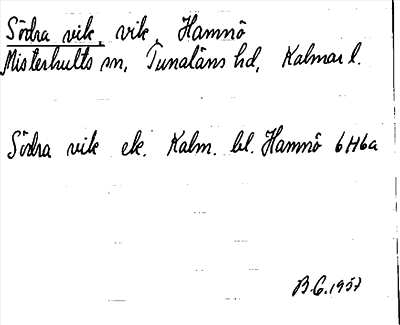 Södra vik, vik, Hamnö
Misterhults sn, Tunaläns hd, Kalmar l.
Södra vik ek. Kalm. bl. Hamnö 6H6a
B.G. 1957